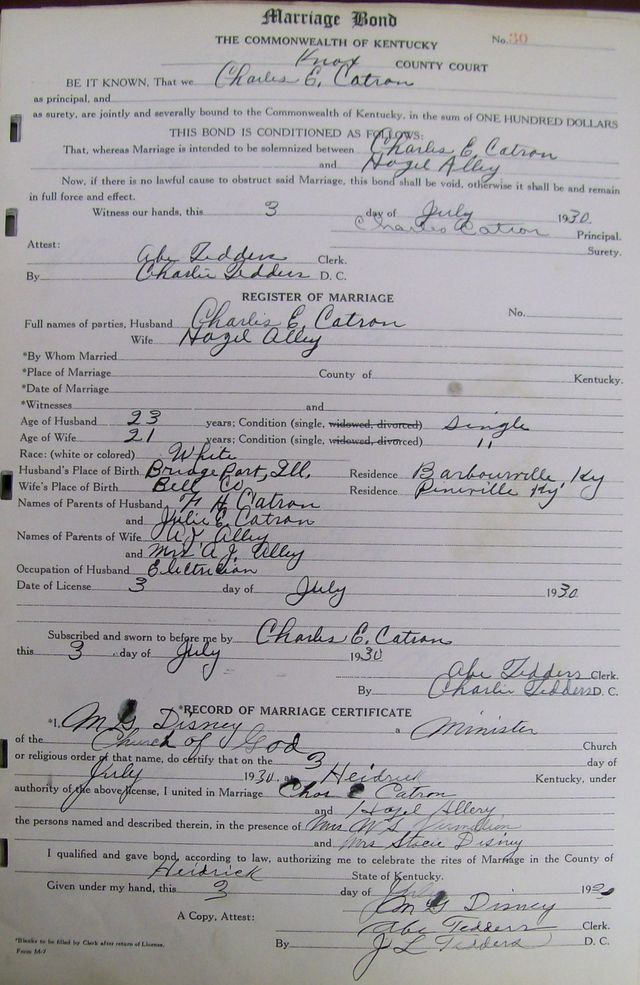 Marriage Bond
THE COMMONWEALTH OF KENTUCKY No. 30
Knox COUNTY COURT
BE IT KNOWN, That we Charles E. Catron
as principal, and
as surety, are jointly and severally bound to the Commonwealth of Kentucky, in the sum of ONE HUNDRED DOLLARS
THIS BOND IS CONDITIONED AS FOLLOWS:
That, whereas Marriage is intended to be solemnized between Charles E. Catron
and Hazel Alley
Now, if there is no lawful cause to obstruct said Marriage, this bond shall be void, otherwise it shall be and remain
in full force and effect.
Witness our hands, this 3 day of July 1930.
Charles Catron Principal.
Surety.
Attest:
Abe Tedders Clerk.
By Charlie Tedders D. C.
REGISTER OF MARRIAGE
No.
Full names of parties, Husband Charlis E. Catron
Wife Hazel Alley
*By Whom Married
*Place of Marriage County of Kentucky.
*Date of Marriage
*Witnesses and
Age of Husband 23 years; Condition (single, widowed, divorced) Single
Age of Wife 21 years; Condition (single, widowed, divorced) "
Race: (white or colored) White
Husband's Place of Birth Bridgeport, Ill. Residence Barbourville, Ky
Wife's Place of Birth Bell Co. Residence Pineville Ky
Names of Parents of Husband H Catron
and Julie E. Catron
Names of Parents of Wife A.J. Alley
and Mrs A.J. Alley
Occupation of Husband Electrician
Date of License 3 day of July 1930.
Subscribed and sworn to before me by Charles E. Catron
this 3 day of July 1930
Abe Tedders Clerk.
By Charlie Tedders D. C.
*RECORD OF MARRIAGE CERTIFICATE
*I, M G Disney a Minister
of the Church of God Church
or religious order of that name, do certify that on the 3 day of
July 1930. at Heidrick Kentucky, under
authority of the above license, I united in Marriage Chas E Catron
and Hazel Allery
the persons named and described therein, in the presence of Mrs
and Mrs Stacie Disney
I qualified and gave bond, according to law, authorizing me to celebrate the rites of Marriage in the County of
Heidrick State of Kentucky.
Given under my hand, this 3 day of July 19
M G Disney
A Copy, Attest: Abe Tedders Clerk.
By J L Tedders D. C.
*Blanks to be filled by Clerk after return of License.
Form M-7